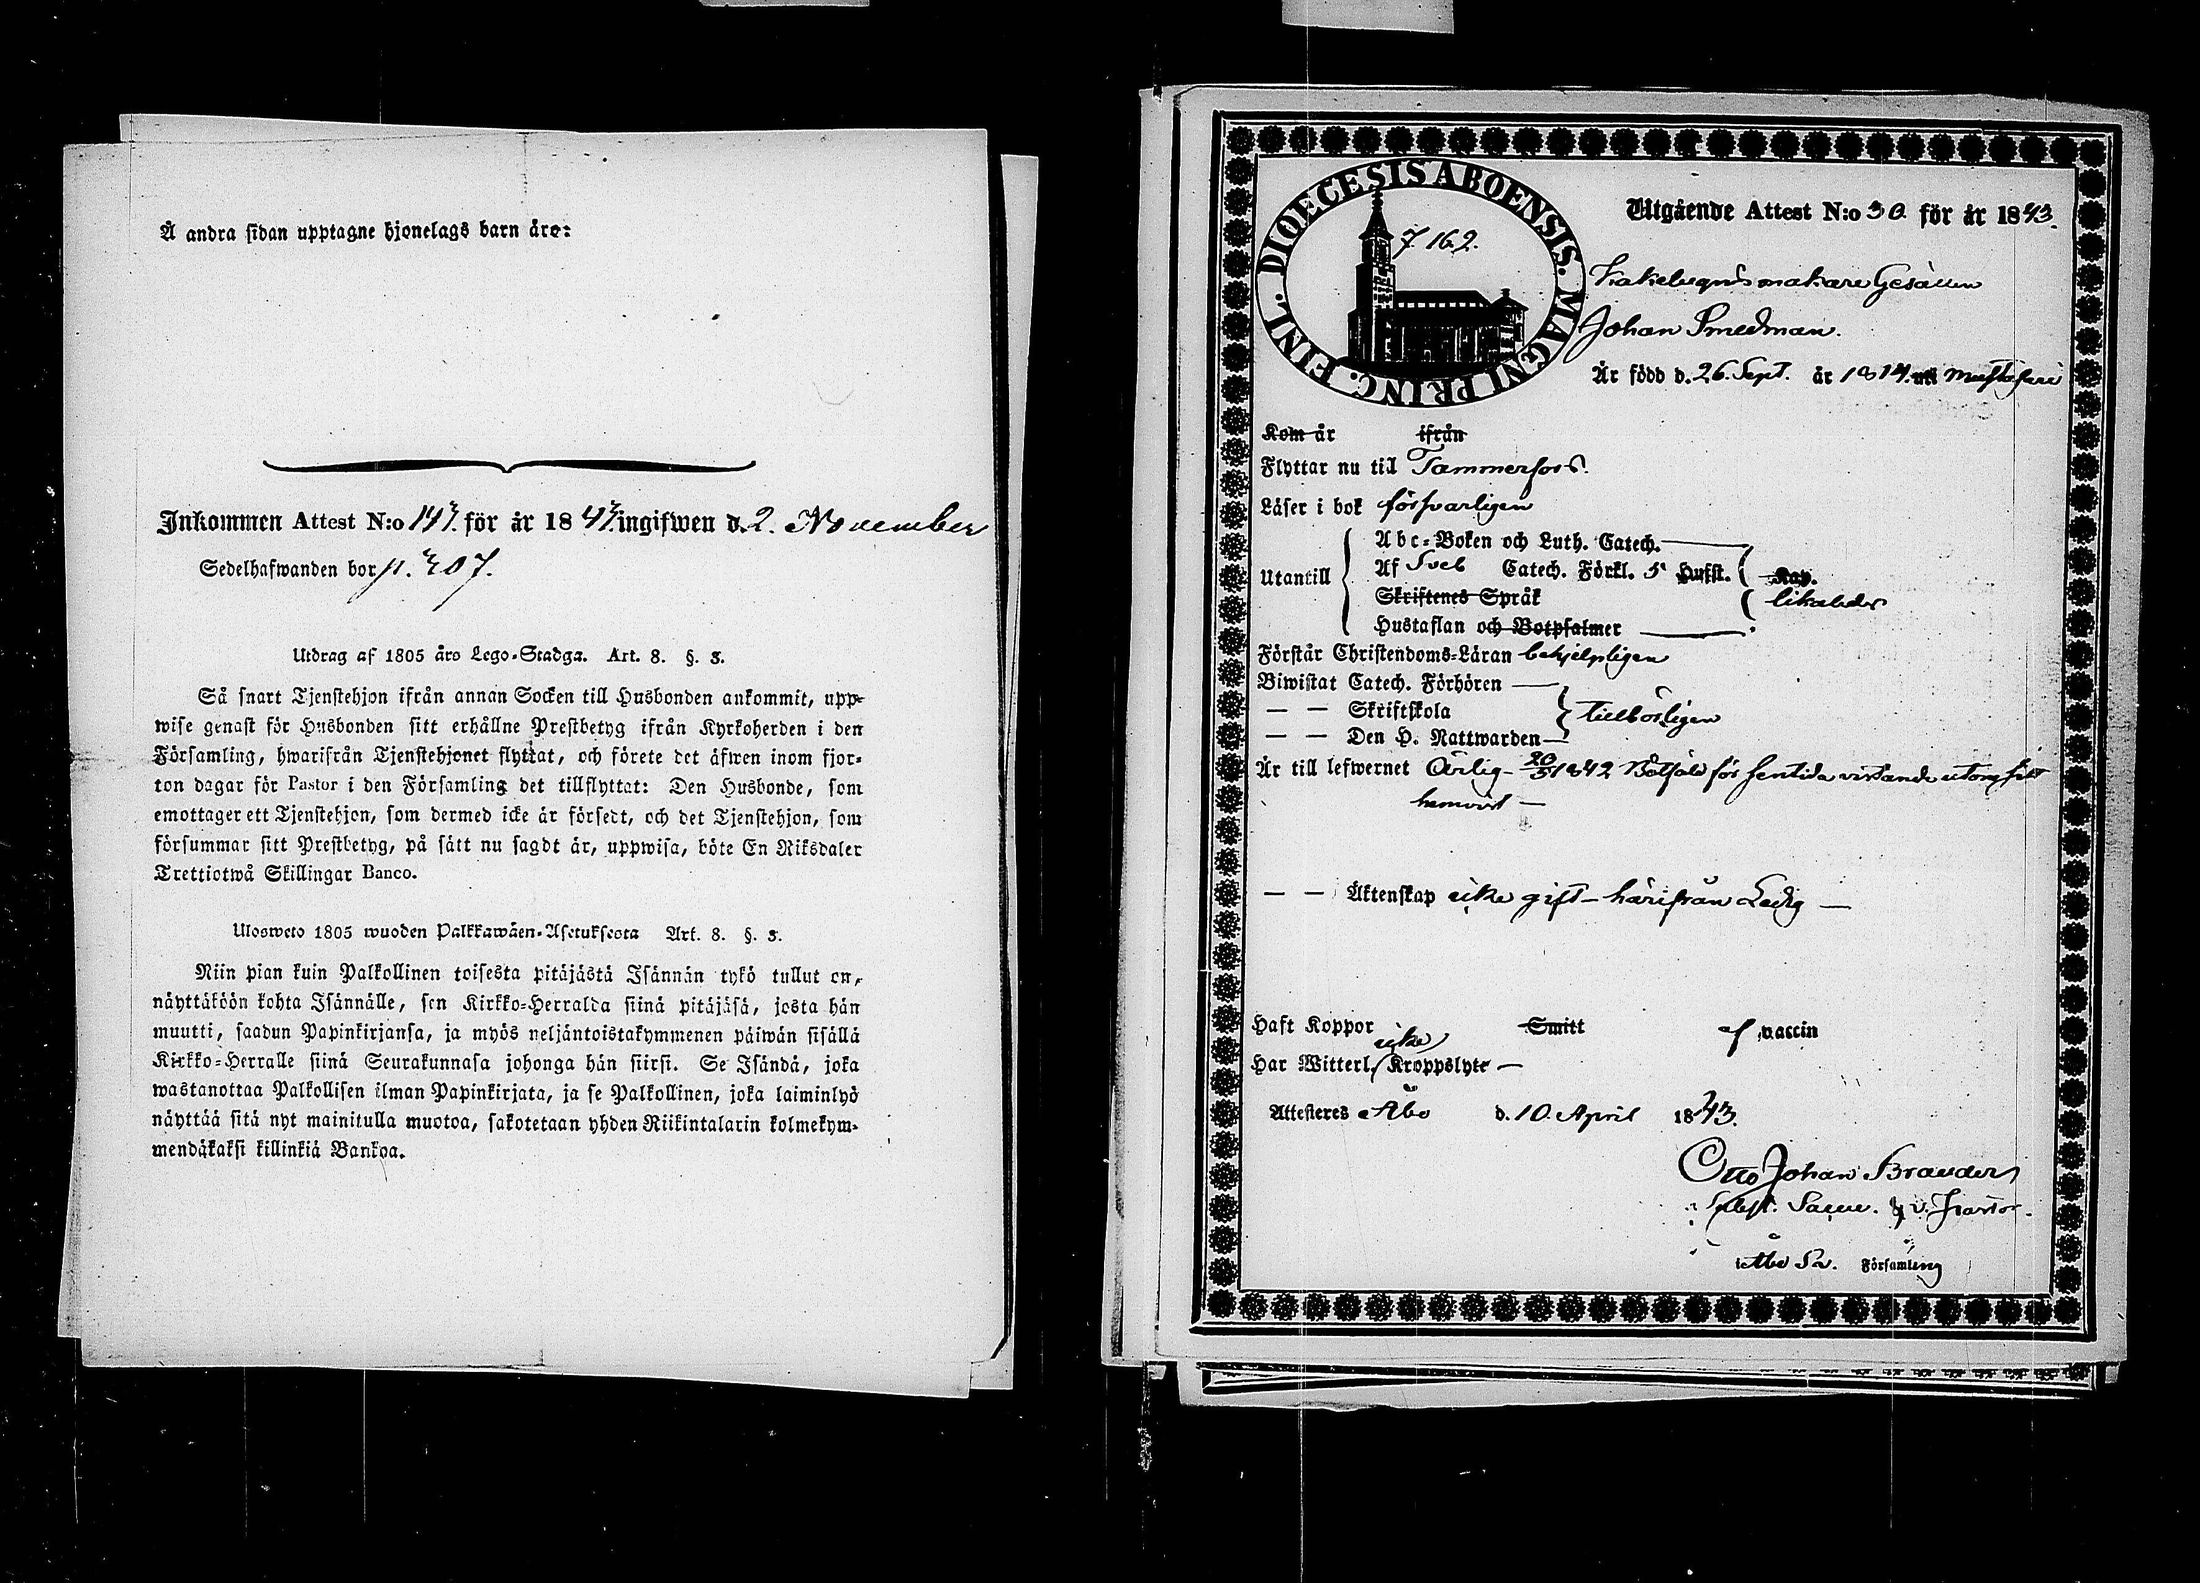 Å andra sidan upptagne hjonelags barn äro:
Inkommen Attest N:o 143. för år 1843. ingifwen d. 2. November
Sedelhafwanden bor p. 307.
Utdrag af 1805 års Lego-Stadga. Art. 8. §. 3.
Så snart Tjenstehjon ifrån annan Socken till Husbonden ankommit, upp-
wise genast för Husbonden sitt erhållne Prestbetyg ifrån Kyrkoherden i den
Församling, hwarifrån Tjenstehjonet flyttat, och förete det äfwen inom fjor-
ton dagar för Pastor i den Församling det tillflyttat: Den Husbonde, som
emottager ett Tjenstehjon, som dermed icke är försedt, och det Tjenstehjon, som
försummar sitt Prestbetyg, på sätt nu sagdt är, uppwisa, böte En Riksdaler
Trettiotwå Skillingar Banco.
Ulosweto 1805 wuoden Palkkawäen-Asetuksesta Art. 8. §. 3.
Niin pian kuin Palkollinen toisesta pitäjästä Isännän tykö tullut on,
näyttäköön kohta Isännälle, sen Kirkko-Herralda siinä pitäjäsä, josta hän
muutti, saadun Papinkirjansa, ja myös neljäntoistakymmenen päiwän sisällä
Kirkko-Herralle siinä Seurakunnasa johonga hän siirsi. Se Isändä, joka
wastanottaa Palkollisen ilman Papinkirjata, ja se Palkollinen, joka laiminlyö
näyttää sitä nyt mainitulla muotoa, sakotetaan yhden Riikintalarin kolmekym-
mendäkaksi killinkiä Bankoa.
DIOECESIS ABOENSIS. MAGNI PRINC. FINL.
7 162.
Utgående Attest N:o 30 för år 1843.
Kakelugnsmakare Gesällen
Johan Smedman.
Är född d. 26. Sept. år 1814. uti
Kom år ifrån
Flyttar nu till Tammerfors.
Läser i bok försvarligen
Utantill
Abc-Boken och Luth. Catech.
Af Sveb Catech. Förkl. 5 Hufst. Kap.
Skriftenes Språk likaledes
Hustaflan och Botpsalmer
Förstår Christendoms-Läran behjelpligen
Biwistat Catech. Förhören
— — Skriftskola tillbörligen
— — Den H. Nattwarden
Är till lefwernet Ärlig - 20/5 1842 Bötfäld för sentida vistande utom sitt
hemvist —
— — Äktenskap icke gift - härifrån Ledig —
Haft Koppor Smitt / vaccin
Har Witterl. icke Kroppslyte —
Attesteres Åbo d. 10. April 1843.
Otto Johan Brander
v. Pastor.
i Åbo Sv. Församling